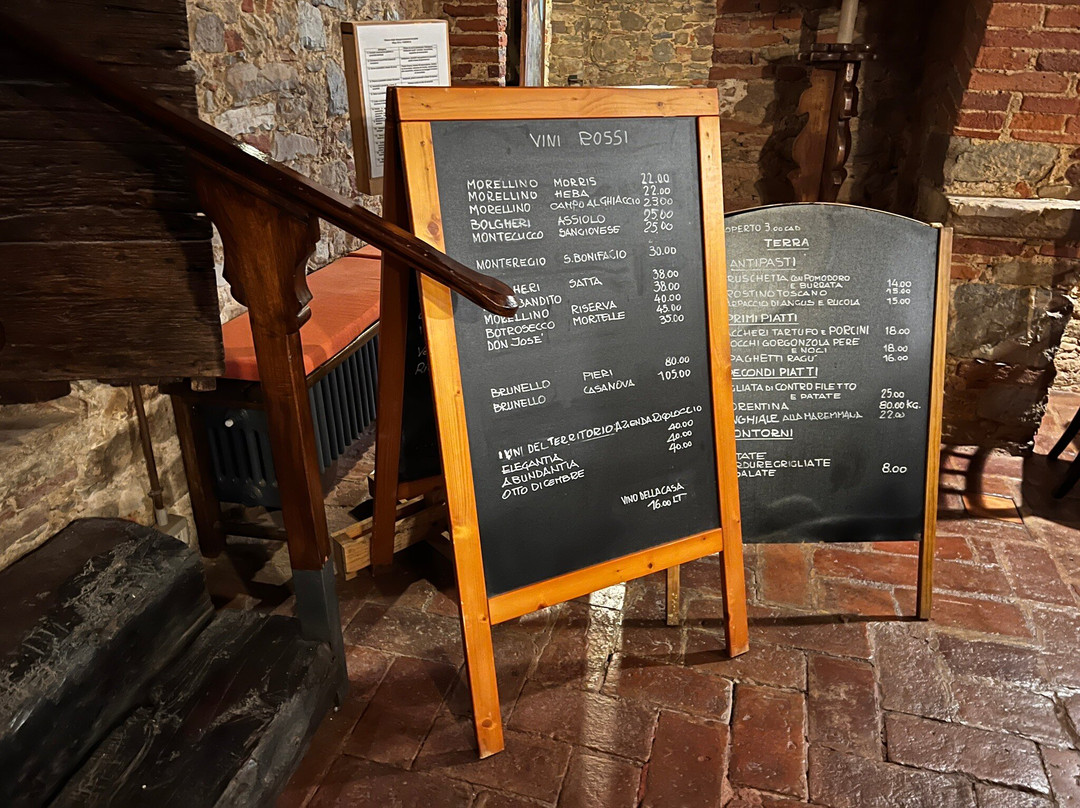 VINI ROSSI
MORELLINO MORRIS 22.00
MORELLINO HEBA 22.00
MORELLINO CAMPO AL GHIACCIO 23.00
BOLGHERI ASSIOLO 25.00
MONTECUCCO SANGIOVESE 25.00
MONTEREGIO S.BONIFACIO 30.00
HERI SATTA 38.00
38.00
MORELLINO RISERVA 40.00
BOTROSECCO MORTELLE 45.00
DON JOSE' 35.00
BRUNELLO PIERI 80.00
BRUNELLO CASANOVA 105.00
VINI DEL TERRITORIO: AZENDA RIGOLOCCIO
ELEGANTIA 40.00
ABUNDANTIA 40.00
OTTO DICEMBRE 40.00
VINO DELLA CASA
16.00 LT
OPERTO 3.00 CAD
TERRA
ANTIPASTI
RUSCHETTA CON POMODORO
E BURRATA 14.00
ROSTINO TOSCANO 15.00
RPACCIO DI ANGUS E RUCOLA 15.00
PRIMI PIATTI
CCHERI TARTUFO E PORCINI 18.00
OCCHI GORGONZOLA PERE
E NOCI 18.00
PAGHETTI RAGU' 16.00
ECONDI PIATTI
GLIATA DI CONTROFILETTO
E PATATE 25.00
ORENTINA 80.00 KG.
NGHIALE ALLA MAREMMANA 22.00
ONTORNI
TATE
RDURE GRIGLIATE
ALATE 8.00